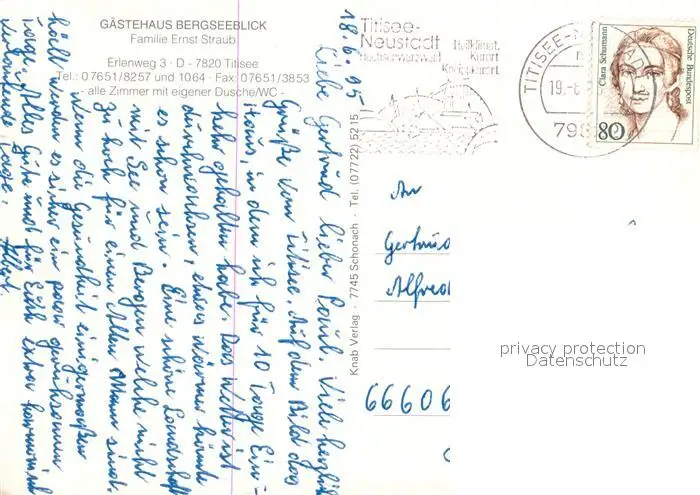 GÄSTEHAUS BERGSEEBLICK
Familie Ernst Straub
Erlenweg 3 · D - 7820 Titisee
Tel.: 07651/8257 und 1064 · Fax: 07651/3853
- alle Zimmer mit eigener Dusche/WC -
18.6.95
Liebe Gertrud lieber Paul. Viele herzlich
Grüße vom Titisee. Auf dem Bild das
Haus, in dem ich für 10 Tage Ein-
kehr gehalten habe. Das Wetter ist
durchwachsen, etwas wärmer könnte
es schon sein. Eine schöne Landschaft
mit See und Bergen welche nicht
zu hoch für einen Alten Mann sind.
Wenn die Gesundheit einigermaßen
hält werden es sicher ein paar geruhsame
Tage. Alles Gute und für Euch extra harmonisch
Tage. Albert.
Knab Verlag · 7745 Schonach · Tel. (07722) 5215
Titisee-
Neustadt
Heilklimat.
Kurort
Hochschwarzwald
Kneippkurort
TITISEE-N
19.-6
798
Clara Schumann
Deutsche Bundespost
80
An
Gertrud
Alfred
66606
privacy protection
Datenschutz